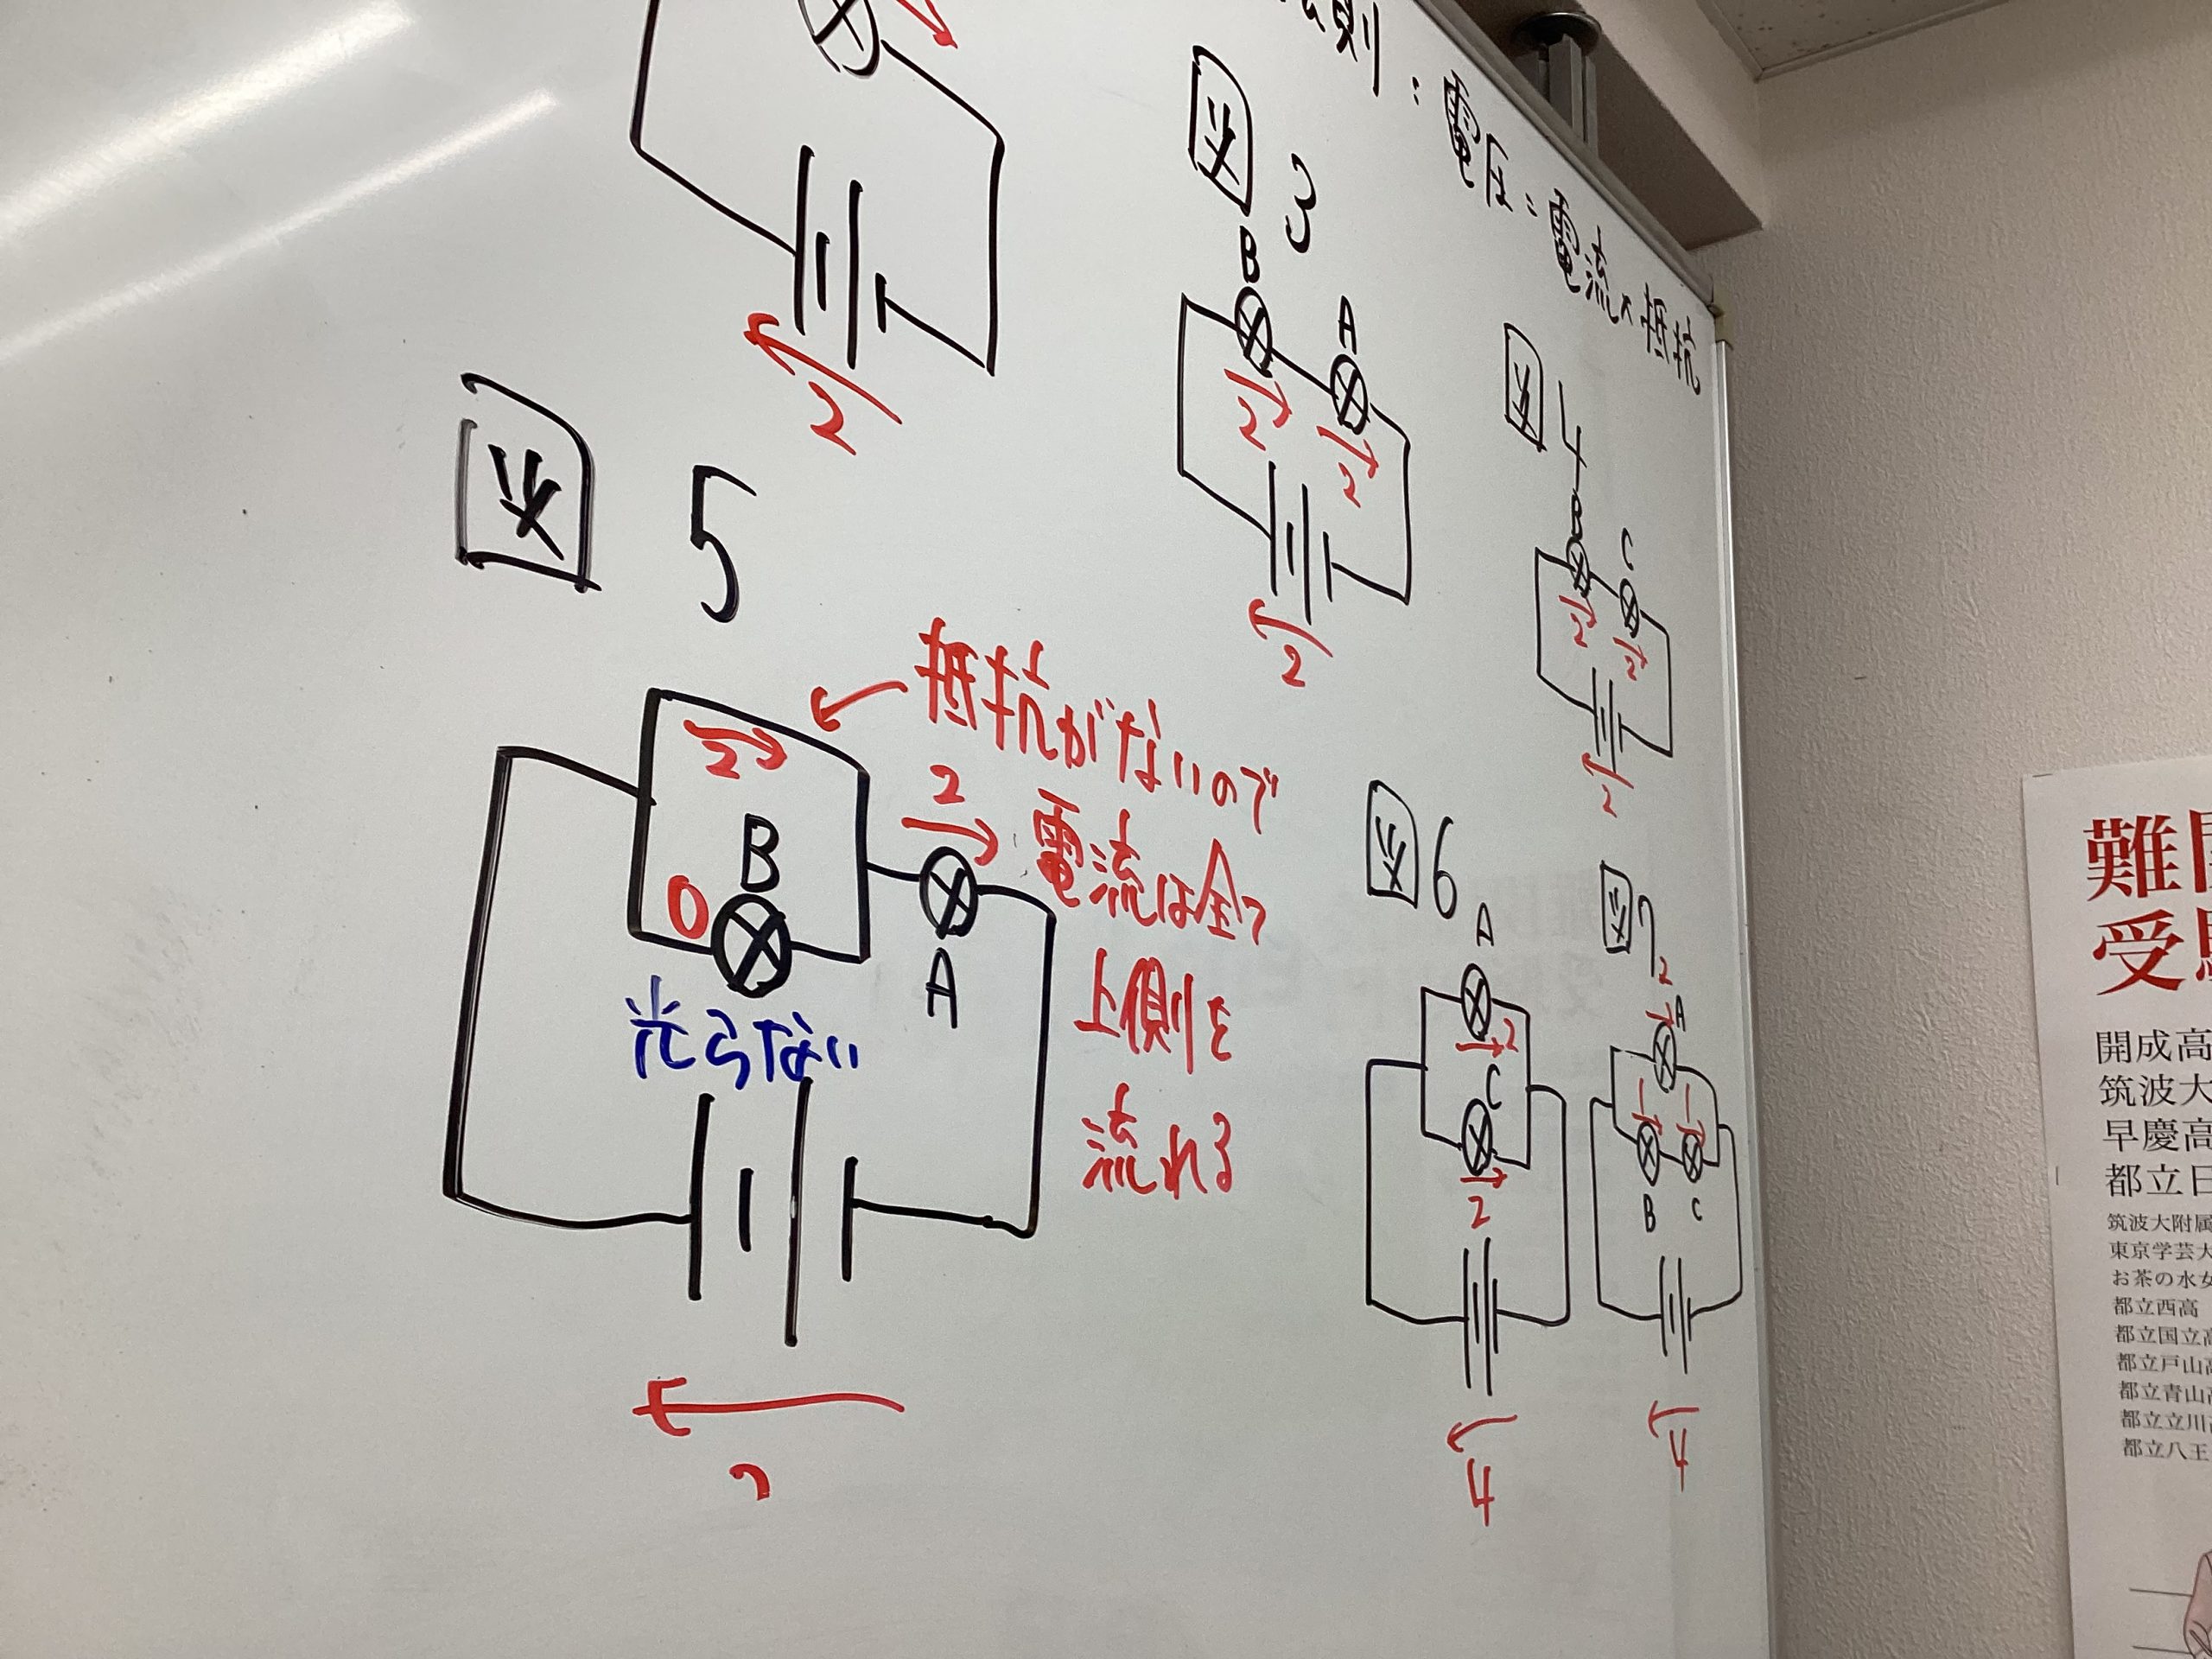 則：電圧=電流×抵抗
2
図3
B
A
2
2
2
図4
B
C
2
2
2
図5
抵抗がないので
電流は全て
上側を
流れる
2
2
B
0
A
光らない
図6
A
2
C
2
4
図7
2
A
1
1
B
C
4
難
受
開成高
筑波大
早慶高
都立日
筑波大附属
東京学芸大
お茶の水女
都立西高
都立国立高
都立戸山高
都立青山高
都立立川高
都立八王